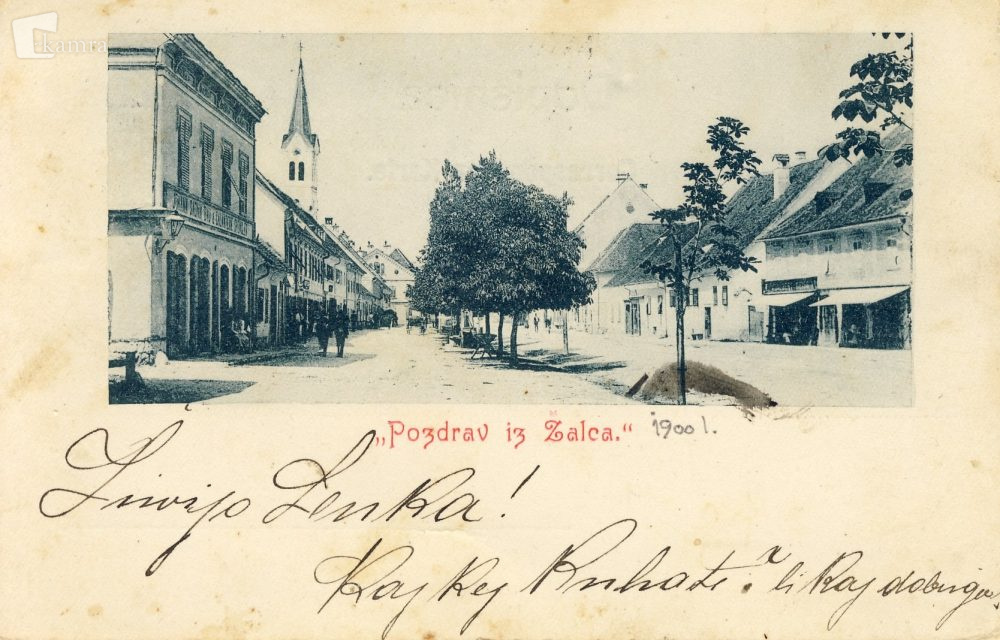 kamra
„Pozdrav iz Žalca.“ 1900 l.
Živijo Lenka!
Kaj kej Kuhate? li kaj dobrga